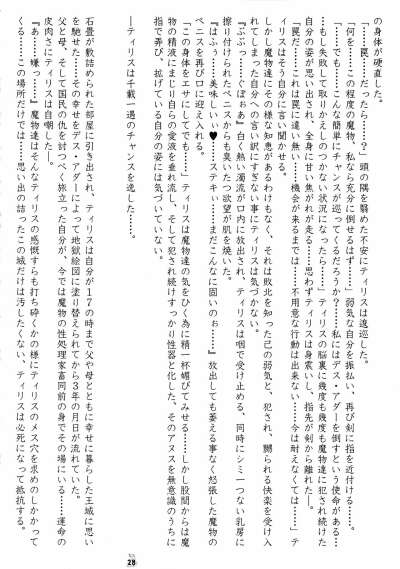 の身体が硬直した。
「……罠……だったら……？」頭の隅を翳めた不安にティリスは逡巡した。
「何を……この程度の魔物、私なら充分に倒せるはず……」弱気な自分を振払い、再び剣に指を近付ける……。
「でも……こんな簡単にチャンスが巡ってくるだろうか？……私にはデス・アダーを倒すという使命がある……
もしも失敗して取りかえしのつかない状況になったら……」ティリスの脳裏に幾度も幾度も魔物達に犯され続けた
自分の姿が思い出され、全身に甘い焦がれが走る……思わずティリスは身震いし、指先が剣から離れた―。
「罠だ……これは罠に違い無い……機会が来るまでは……不用意な行動は出来ない……今は耐えなくては……」テ
ィリスはそう自分に言い聞かせる。
しかし魔物達にその様な知恵があるわけもなく、それは敗北を知った己の弱気と、犯され、嬲られる快楽を受け入
れてしまった自分への言い訳にすぎない事にティリスは気づかない。
『ぶぶっ……ぐぽぁぁ』白く熱い濁流が口内に放出され、ティリスは咽で受け止める、同時にシミ一つない乳房に
擦り付けられたペニスからも臭いたつ欲望が肌を焼いた。
『はふぅ……美味しいぃ♥……ステキぃ……まだこんなに固いのぉ……』放出しても萎える事なく怒張した魔物の
ペニスを再び口に迎え入れる。
「この身体をエサにしてでも……」ティリスは魔物達の気をひく為に精一杯媚びてみせる……しかし股間からは魔
物の精液にまじり自らの愛液を垂れ流し、そして犯され続けすっかり性器と化した、そのアヌスを無意識のうちに
指で弄び、拡げている自分の姿に気づいていない。
―ティリスは千載一遇のチャンスを逸した……。
石畳が敷詰められた部屋に引き出され、ティリスは自分が17の時まで父や母とともに幸せに暮らした王城に思い
を馳せた……その幸せをデス・アダーによって地獄絵図に塗り替えられてから3年の月日が流れていた。
父と母、そして国民の仇を討つべく旅立った自分が、今では魔物の性処理家畜同前の身でその場にいる……運命の
皮肉さにティリスは自嘲した……。
『あ……嫌っ……』魔物達はそんなティリスの感慨すらも打ち砕くかの様にティリスのメス穴を求めのしかかって
くる……この場所だけでは……思い出の詰ったこの城だけは汚したくない、ティリスは必死になって抵抗する。
28